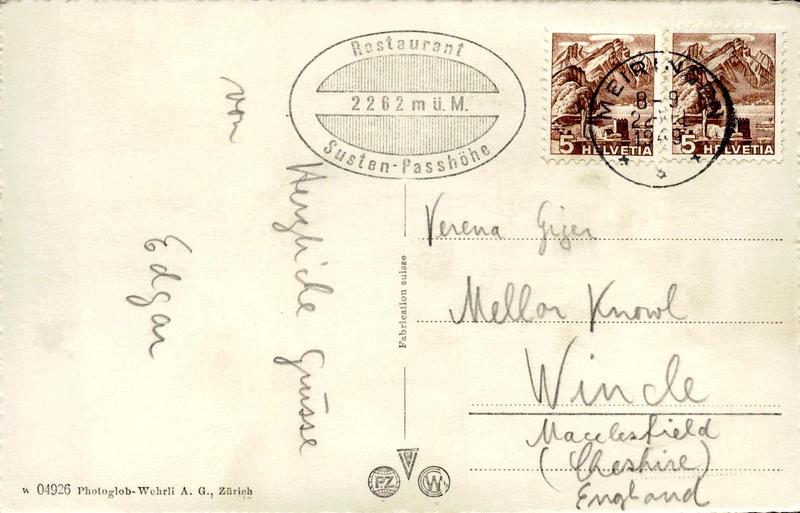 Restaurant
2262 m ü. M.
Susten-Passhöhe
5 HELVETIA
5 HELVETIA
MEIRINGEN
8-9
1949
Herzliche Grüsse
von
Edgar
Fabrication suisse
Verena Giger
Mellor Knowl
Wincle
Macclesfield
(Cheshire)
England
W 04926 Photoglob-Wehrli A. G., Zürich
PZ
W